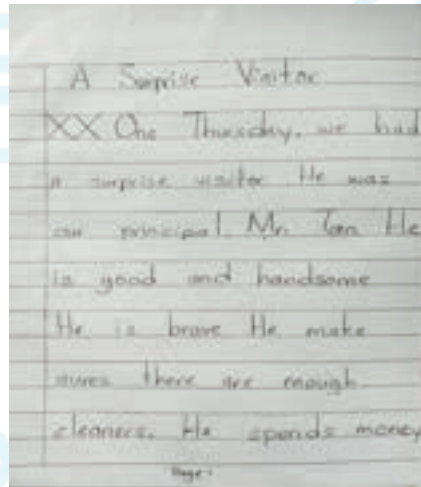 A Surprise Visitor
XX One Thursday, we had
a surprise visitor He was
our principal, Mr. Tan He
is good and handsome
He is brave He make
sures there are enough
cleaners. He spends money
Page 1